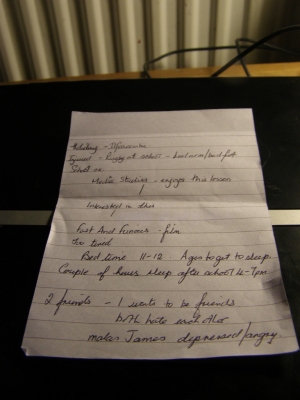 Holiday -
Injured - Rugby at school - bad arm/bad foot
School ok
Media Studies - enjoys this lesson
Interested in this
Fast And Furious - film
Too tired
Bed time 11-12 Ages to get to sleep
Couple of hours sleep after school 4-7pm
2 friends - 1 wants to be friends
both hate each other
makes James depressed/angry.